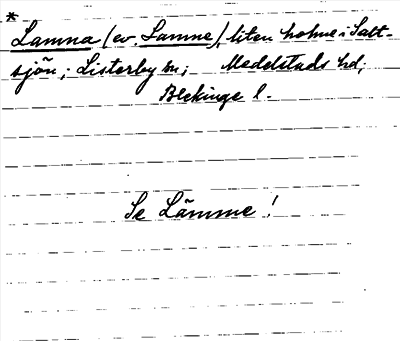 *
Lamna (ev. Lamne), liten holme i Salt-
sjön; Listerby sn; Medelstads hd;
Blekinge l.
Se Lämme!